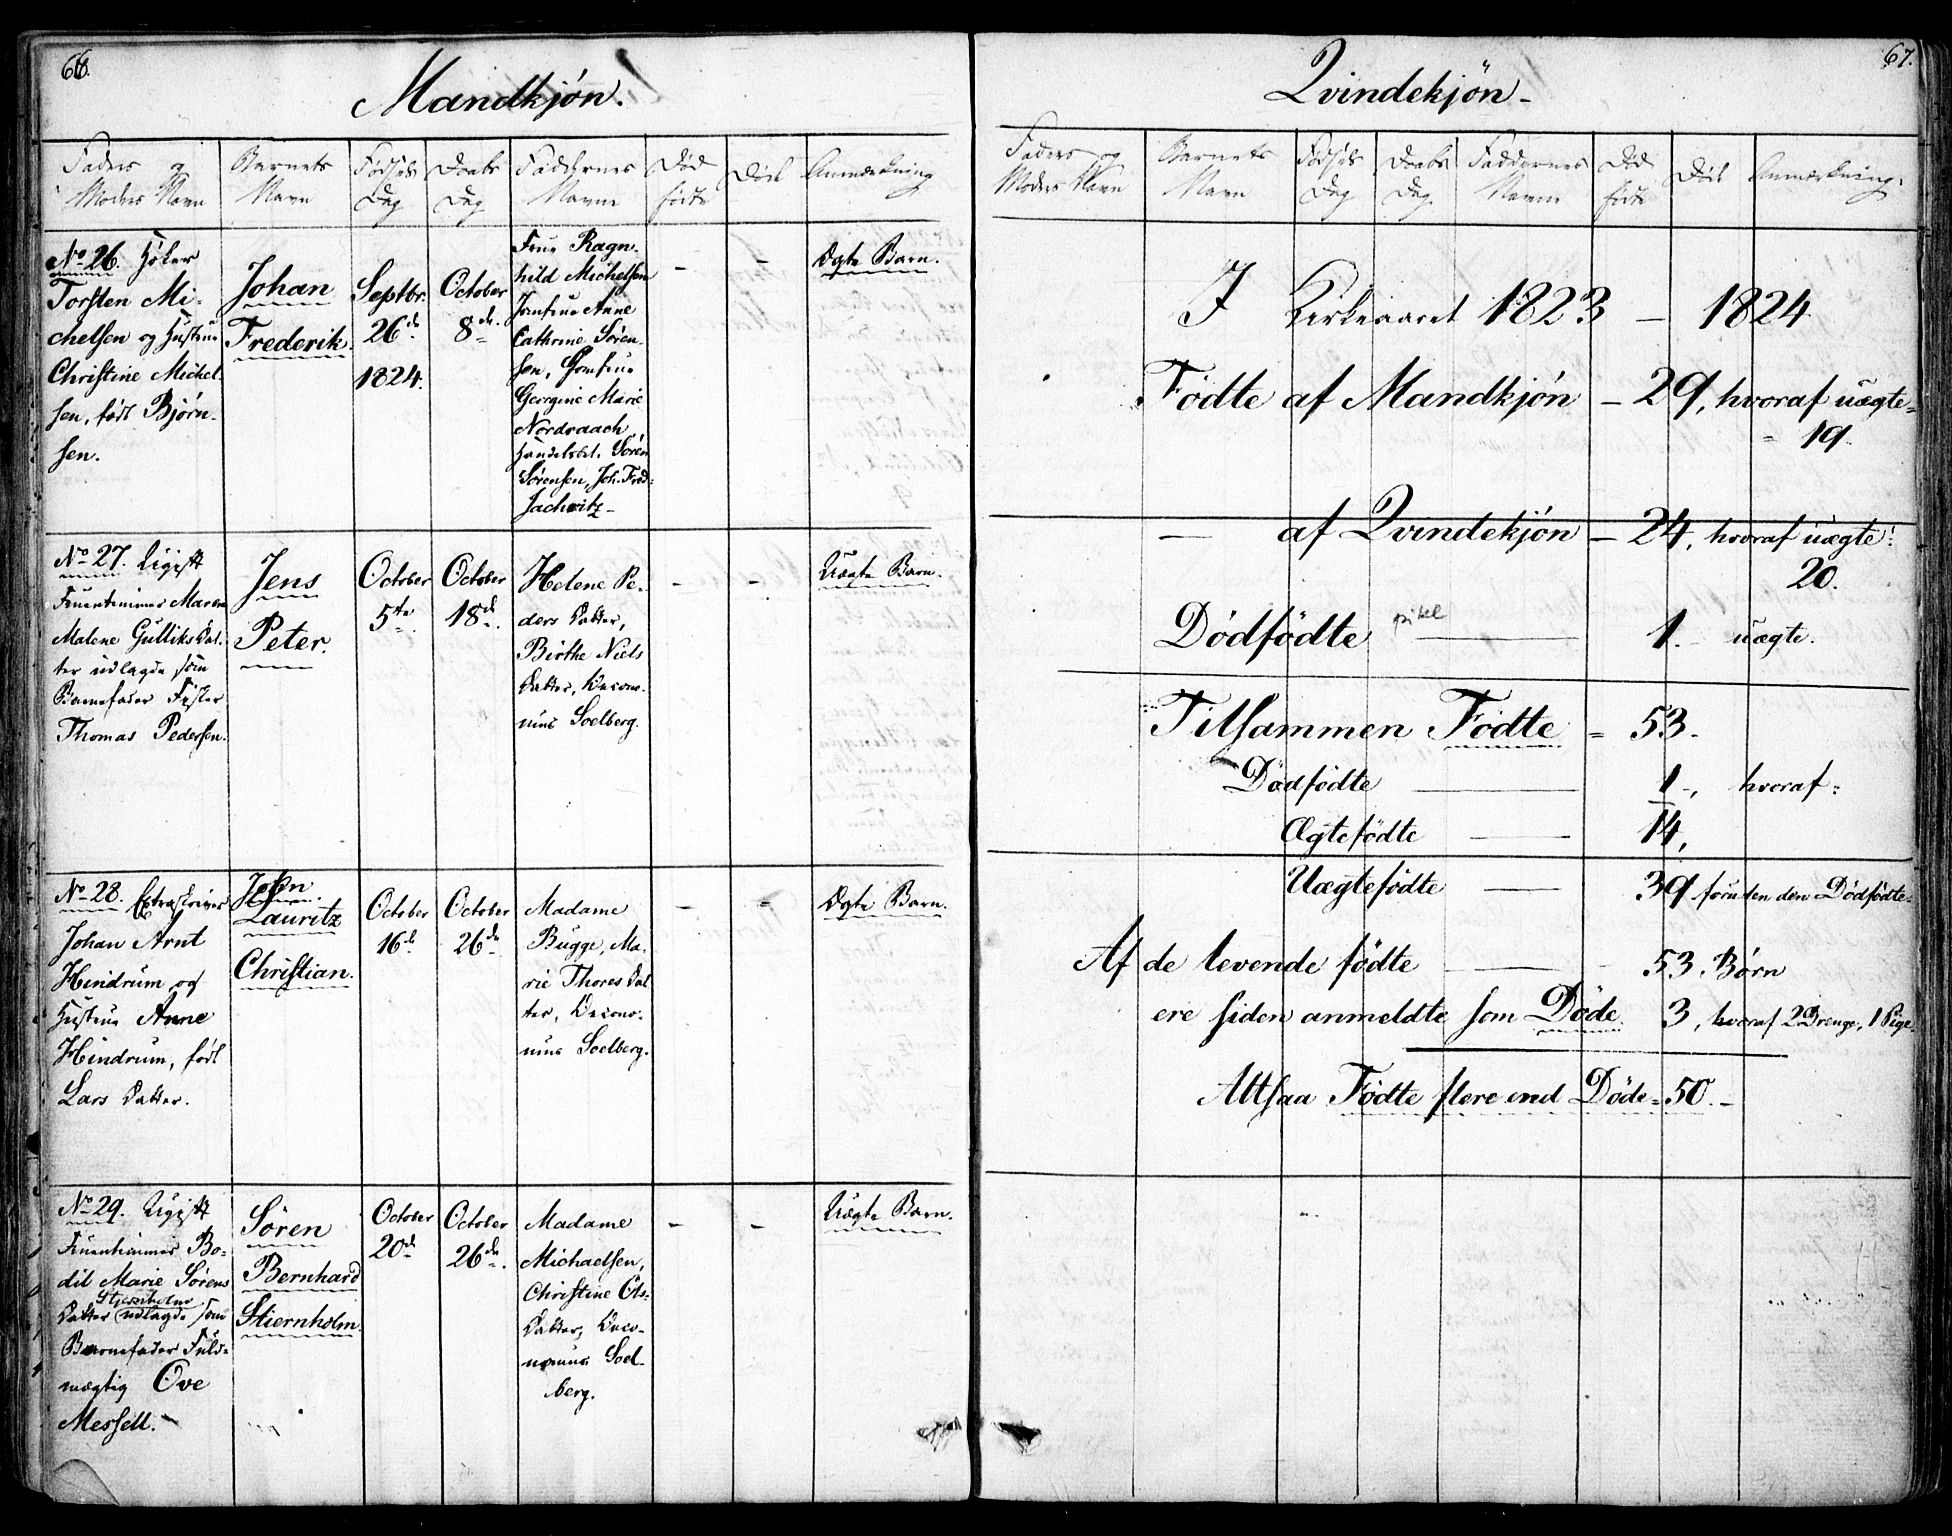 66.
Mandkjön.
Faders og Moders Navn
Barnets Navn
Fødsels Dag
Daabs Dag
Faddernes Navne
Død fødte
Død
Anmærkning
No 26. Höker
Torsten Mi-
chelsen og Hustrue
Christine Michel-
sen, født Bjørn-
sen.
Johan
Frederik.
Septbr.
26de
1824.
October
8de.
Frue Ragn-
hild Michelsen
Jomfrue Anne
Cathrine Søren-
sen, Jomfrue
Georgine Marie
Nordraach
Handelsbet. Søren
Sørensen, Joh. Fred-
Jachwitz-
-
-
Ægte Barn.
No 27. Ugift
Fruentimmer Maren
Malene Gulliksdat-
ter udlagde som
Barnefader
Thomas Pedersen.
Jens
Peter.
October
5te
October
18de.
Helene Pe-
ders Datter,
Birthe Niels
Datter, Oecono-
mus Soelberg.
-
-
Uægte Barn.
No 28. Extraskriver
Johan Arnt
Hindrum og
Hustrue Anne
Hindrum, født
Lars Datter.
John
Lauritz
Christian.
October
16de
October
26de
Madame
Bugge, Ma-
rie Thores Dat
ter, Oecono-
mus Soelberg.
-
-
Ægte Barn.
No 29. Ugift
Fruentimmer Bo-
dil Marie Sørens
Stjernholm
Datter udlagde som
Barnefader Fuld-
mægtig Ove
Messell.
Sören
Bernhard
Stiernholm.
October
20de
October
26de.
Madame
Michaelsen,
Christine Ols-
Datter, Oeco-
nomus Soel-
berg.
-
-
Uægte Barn.
67.
Qvindekjön-
Faders og Moders Navn
Barnets Navn
Fødsels Dag
Daabs Dag
Faddernes Navne
Død fødte
Død
Anmærkning.
I Kirkeaaret 1823 - 1824
Födte af Mandkjön - 29, hvoraf uægte-
19.
- af Qvindekjön - 24, hvoraf uægte:
20.
Dödfödte pikel 1. uægte.
Tilsammen Födte = 53.
Dödfödte 1, hvoraf:
Ægtefödte 14,
Uægtefödte 39 foruden den Dödfödte.
Af de levende födte 53. Børn
ere siden anmeldte som Döde 3, hvoraf 2 Drenge, 1 Pige
Altsaa Födte flere end Döde = 50.-